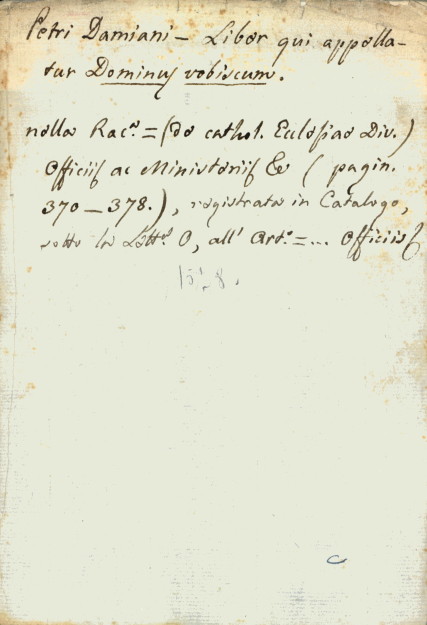 Petri Damiani – Liber qui appella-
tur Dominus vobiscum.
nella Rac.ª = (de cathol. Ecclesiae Div.)
Officiis ac Ministeriis & ( pagin.
370 – 378.), registrata in Catalogo,
sotto la Lett.ª O, all' Art.º = ... Officiis
C